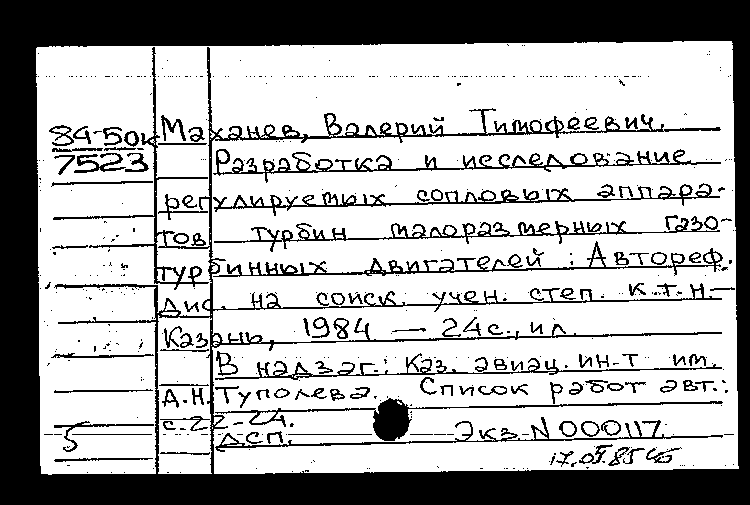 84-50к Маханев, Валерий Тимофеевич.
7523 Разработка и исследование
регулируемых сопловых аппара-
тов турбин малоразмерных газо-
турбинных двигателей : Автореф.
дис. на соиск. учен. степ. к.т.н.-
Казань, 1984 — 24с., ил.
В надзаг.: Каз. авиац. ин-т им.
А.Н. Туполева. Список работ авт.:
с.22-24.
5 ДСП. Экз. N 000117.